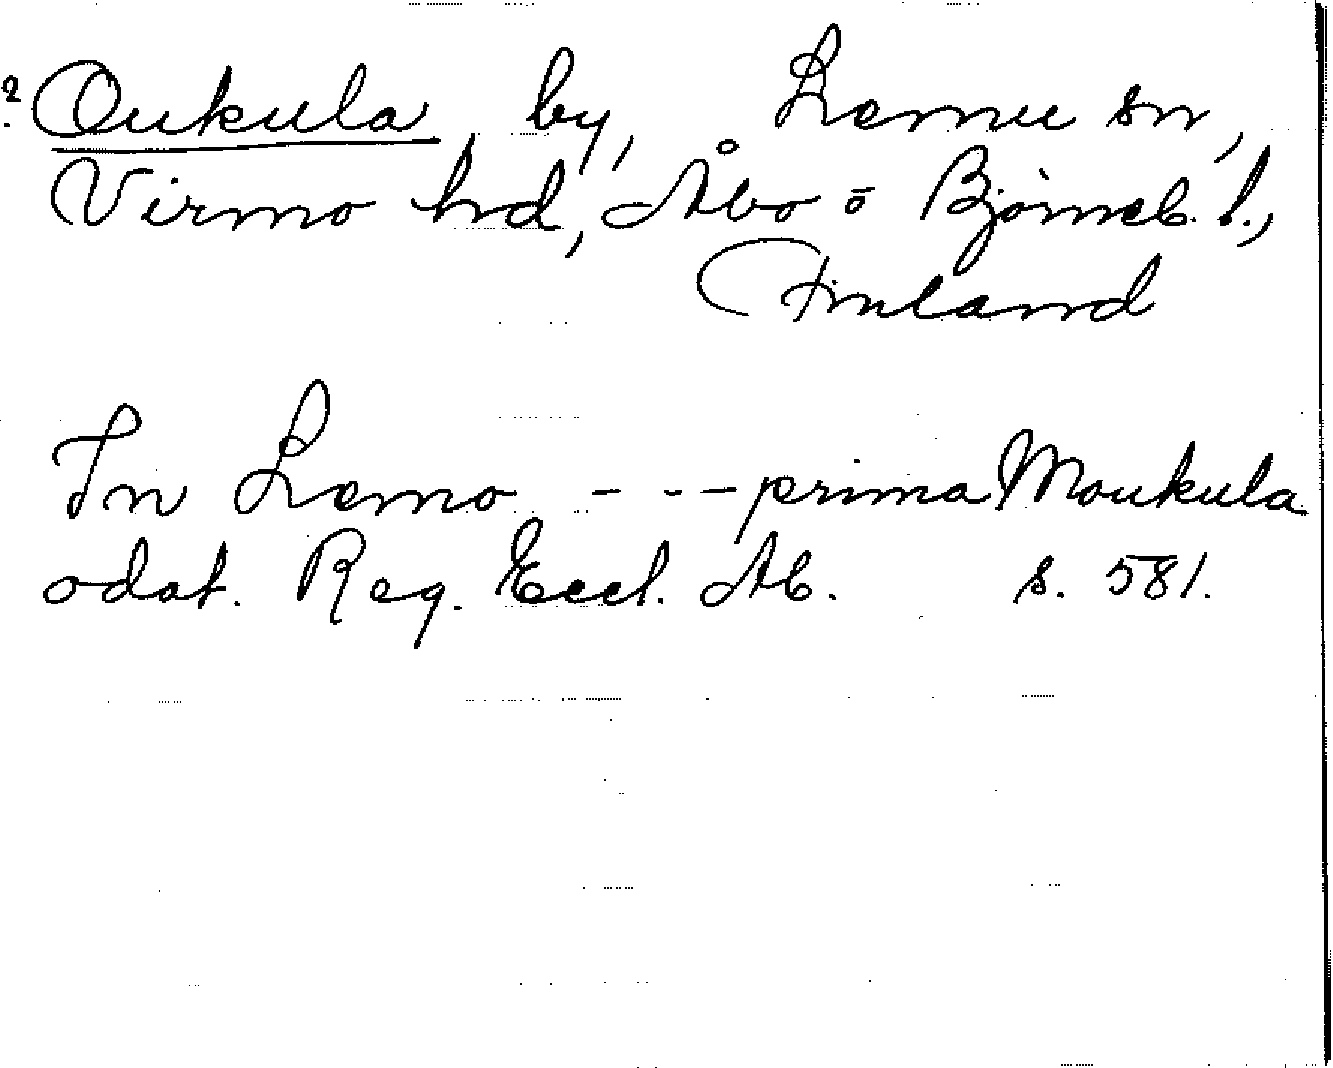 ? Oukula by, Lemu sn,
Virmo hd, Åbo o Björneb. l.,
Finland
In Lemo - - - prima Moukula
odat. Reg. Eccl. Ab. s. 581.